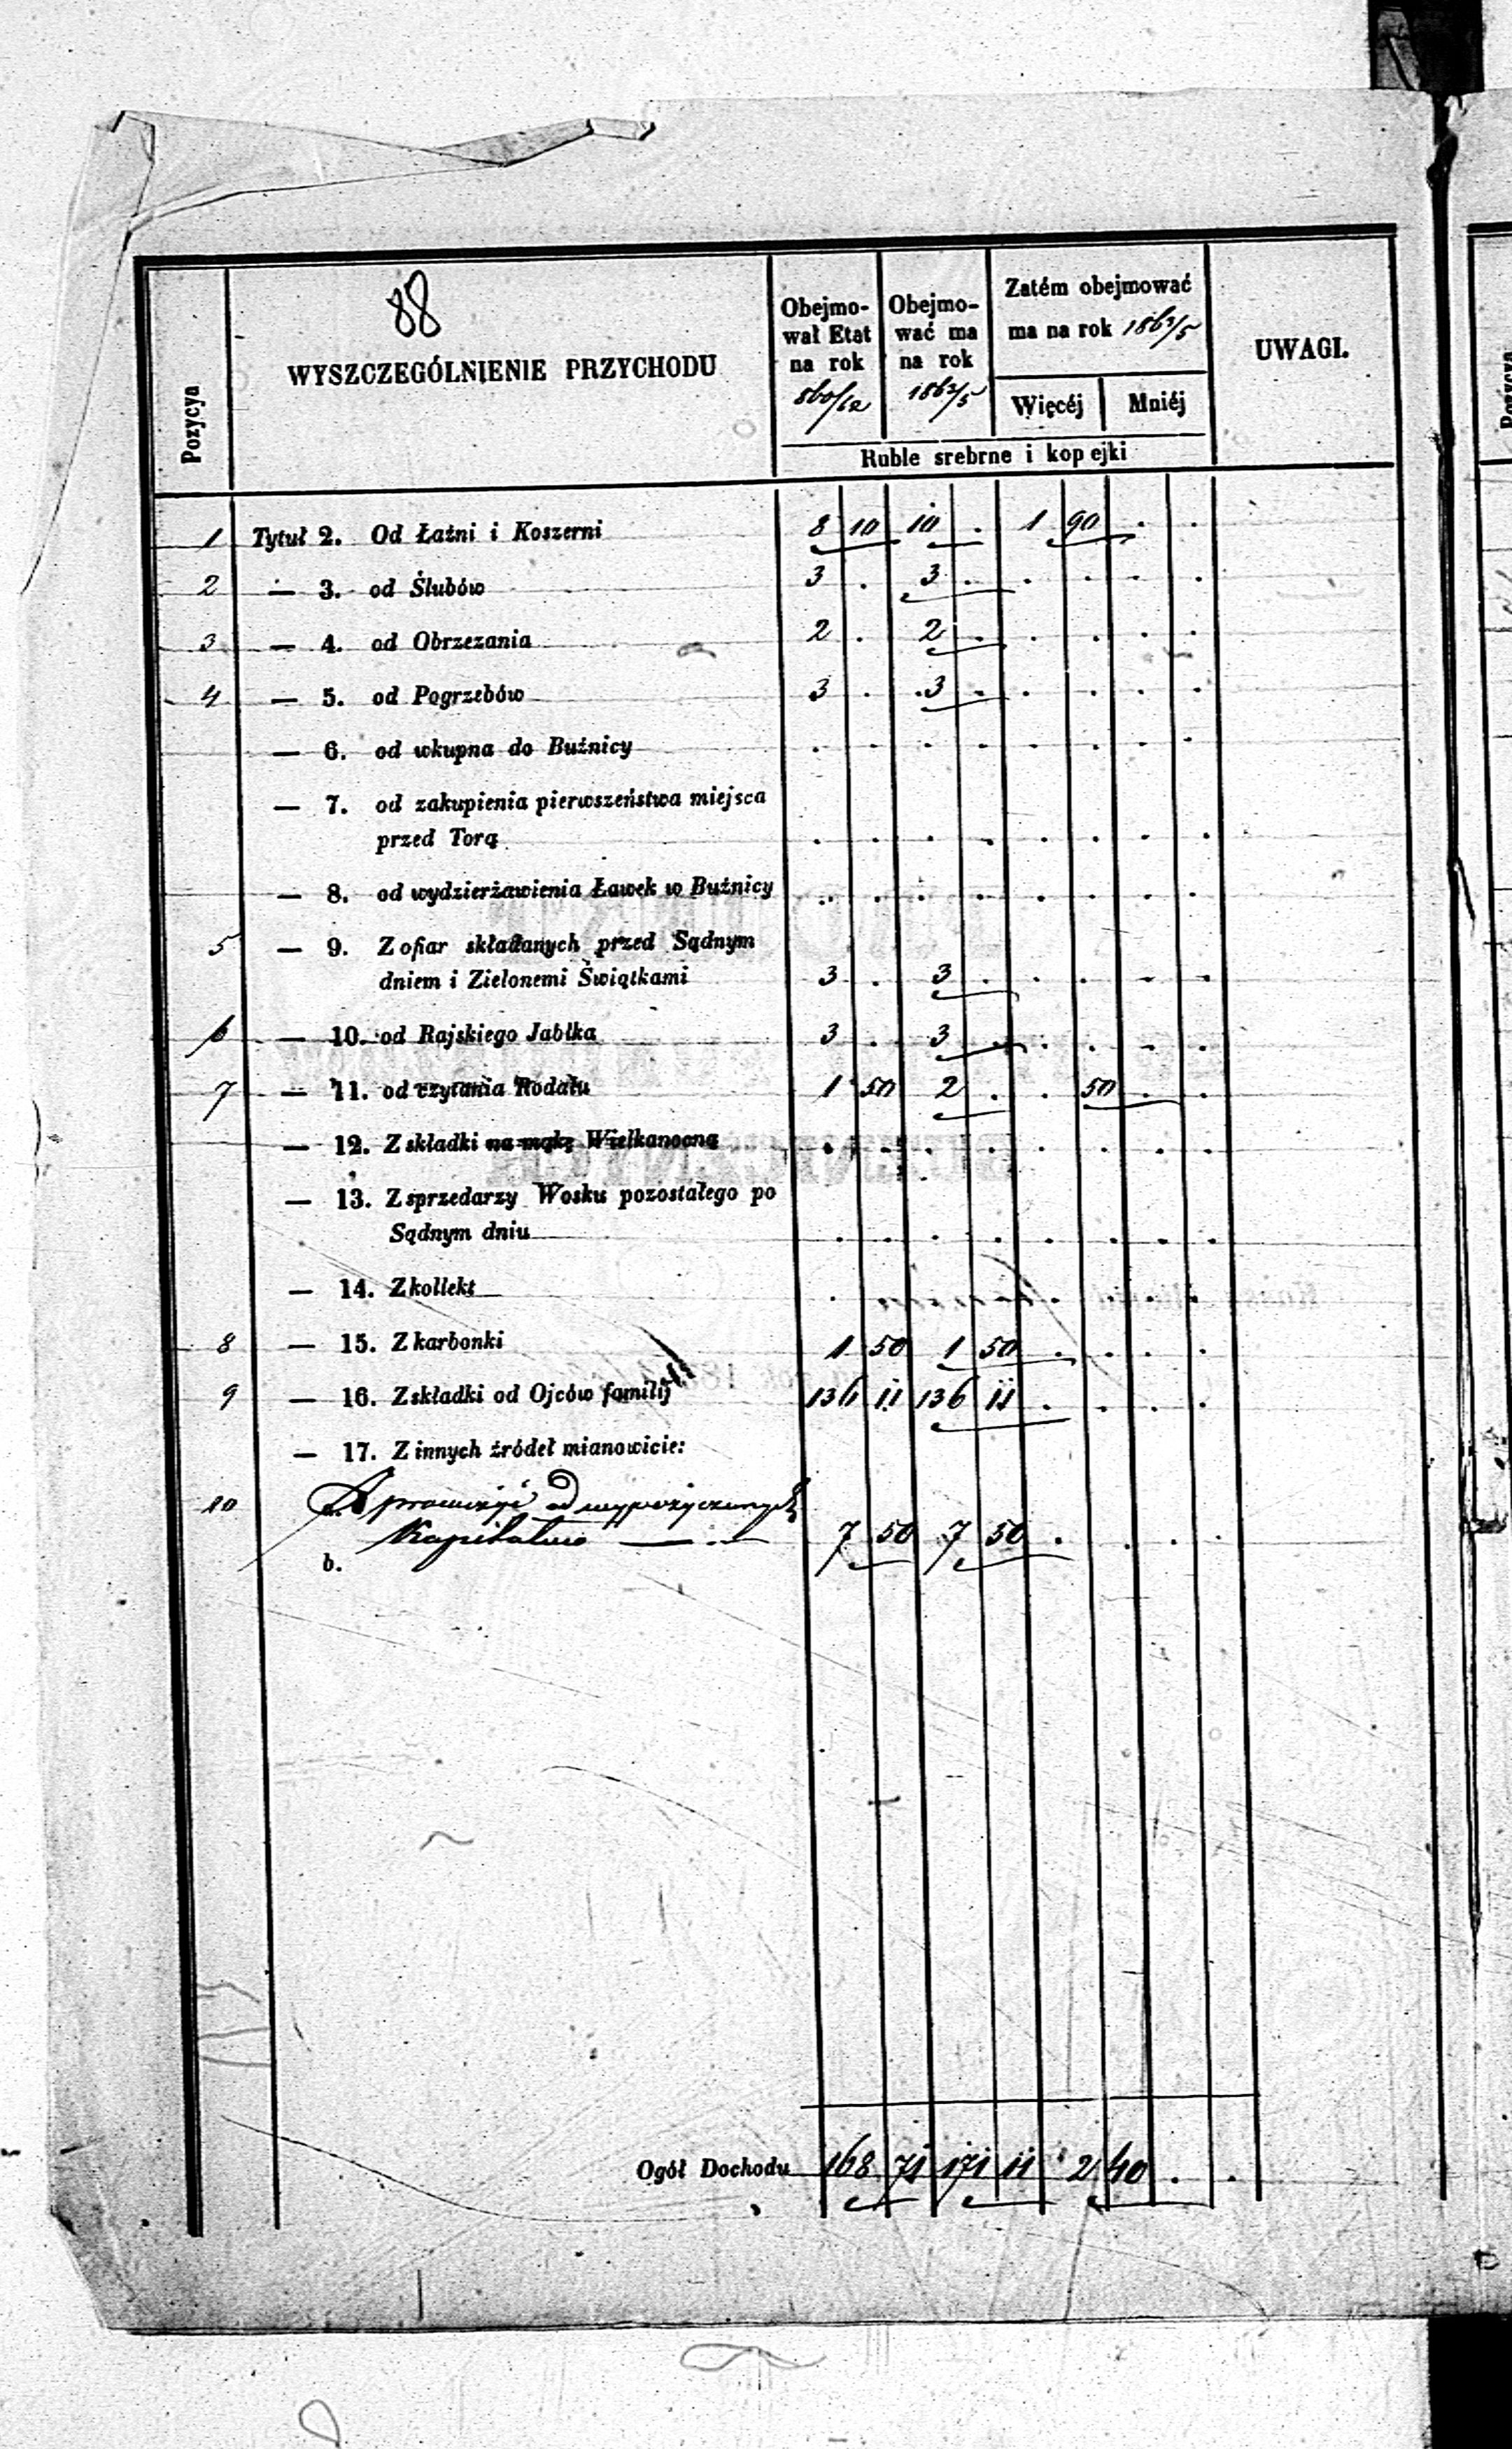 88
Pozycya
WYSZCZEGÓLNIENIE PRZYCHODU
Obejmo-
wał Etat
na rok
860/62
Obejmo-
wać ma
na rok
1863/5
Zatém obejmować
ma na rok 1863/5
Więcéj Mniéj
UWAGI.
Ruble srebrne i kopejki
1 Tytuł 2. Od Łaźni i Koszerni 8 10 10 . 1 90 . .
2 — 3. od Ślubów 3 . 3 . . . . .
3 — 4. od Obrzezania 2 . 2 . . . . .
4 — 5. od Pogrzebów 3 . 3 . . . . .
— 6. od wkupna do Buźnicy . . . . . . . .
— 7. od zakupienia pierwszeństwa miejsca
przed Torą . . . . . . . .
— 8. od wydzierżawienia Ławek w Buźnicy . . . . . . . .
5 — 9. Z ofiar składanych przed Sądnym
dniem i Zielonemi Świątkami 3 . 3 . . . . .
6 — 10. od Rajskiego Jabłka 3 . 3 . . . . .
7 — 11. od czytania Rodału 1 50 2 . . 50 . .
— 12. Z składki na mąkę Wielkanocną . . . . . . . .
— 13. Z sprzedarzy Wosku pozostałego po
Sądnym dniu . . . . . . . .
— 14. Z kollekt . . . . .
8 — 15. Z karbonki 1 50 1 50 . . . .
9 — 16. Z składki od Ojców familij 136 11 136 11 . . . .
— 17. Z innych źródeł mianowicie:
10 a. prowizyi od wypożyczonych
Kapitałów 7 50 7 50 . . . .
b.
Ogół Dochodu 168 71 171 11 2 40 . .